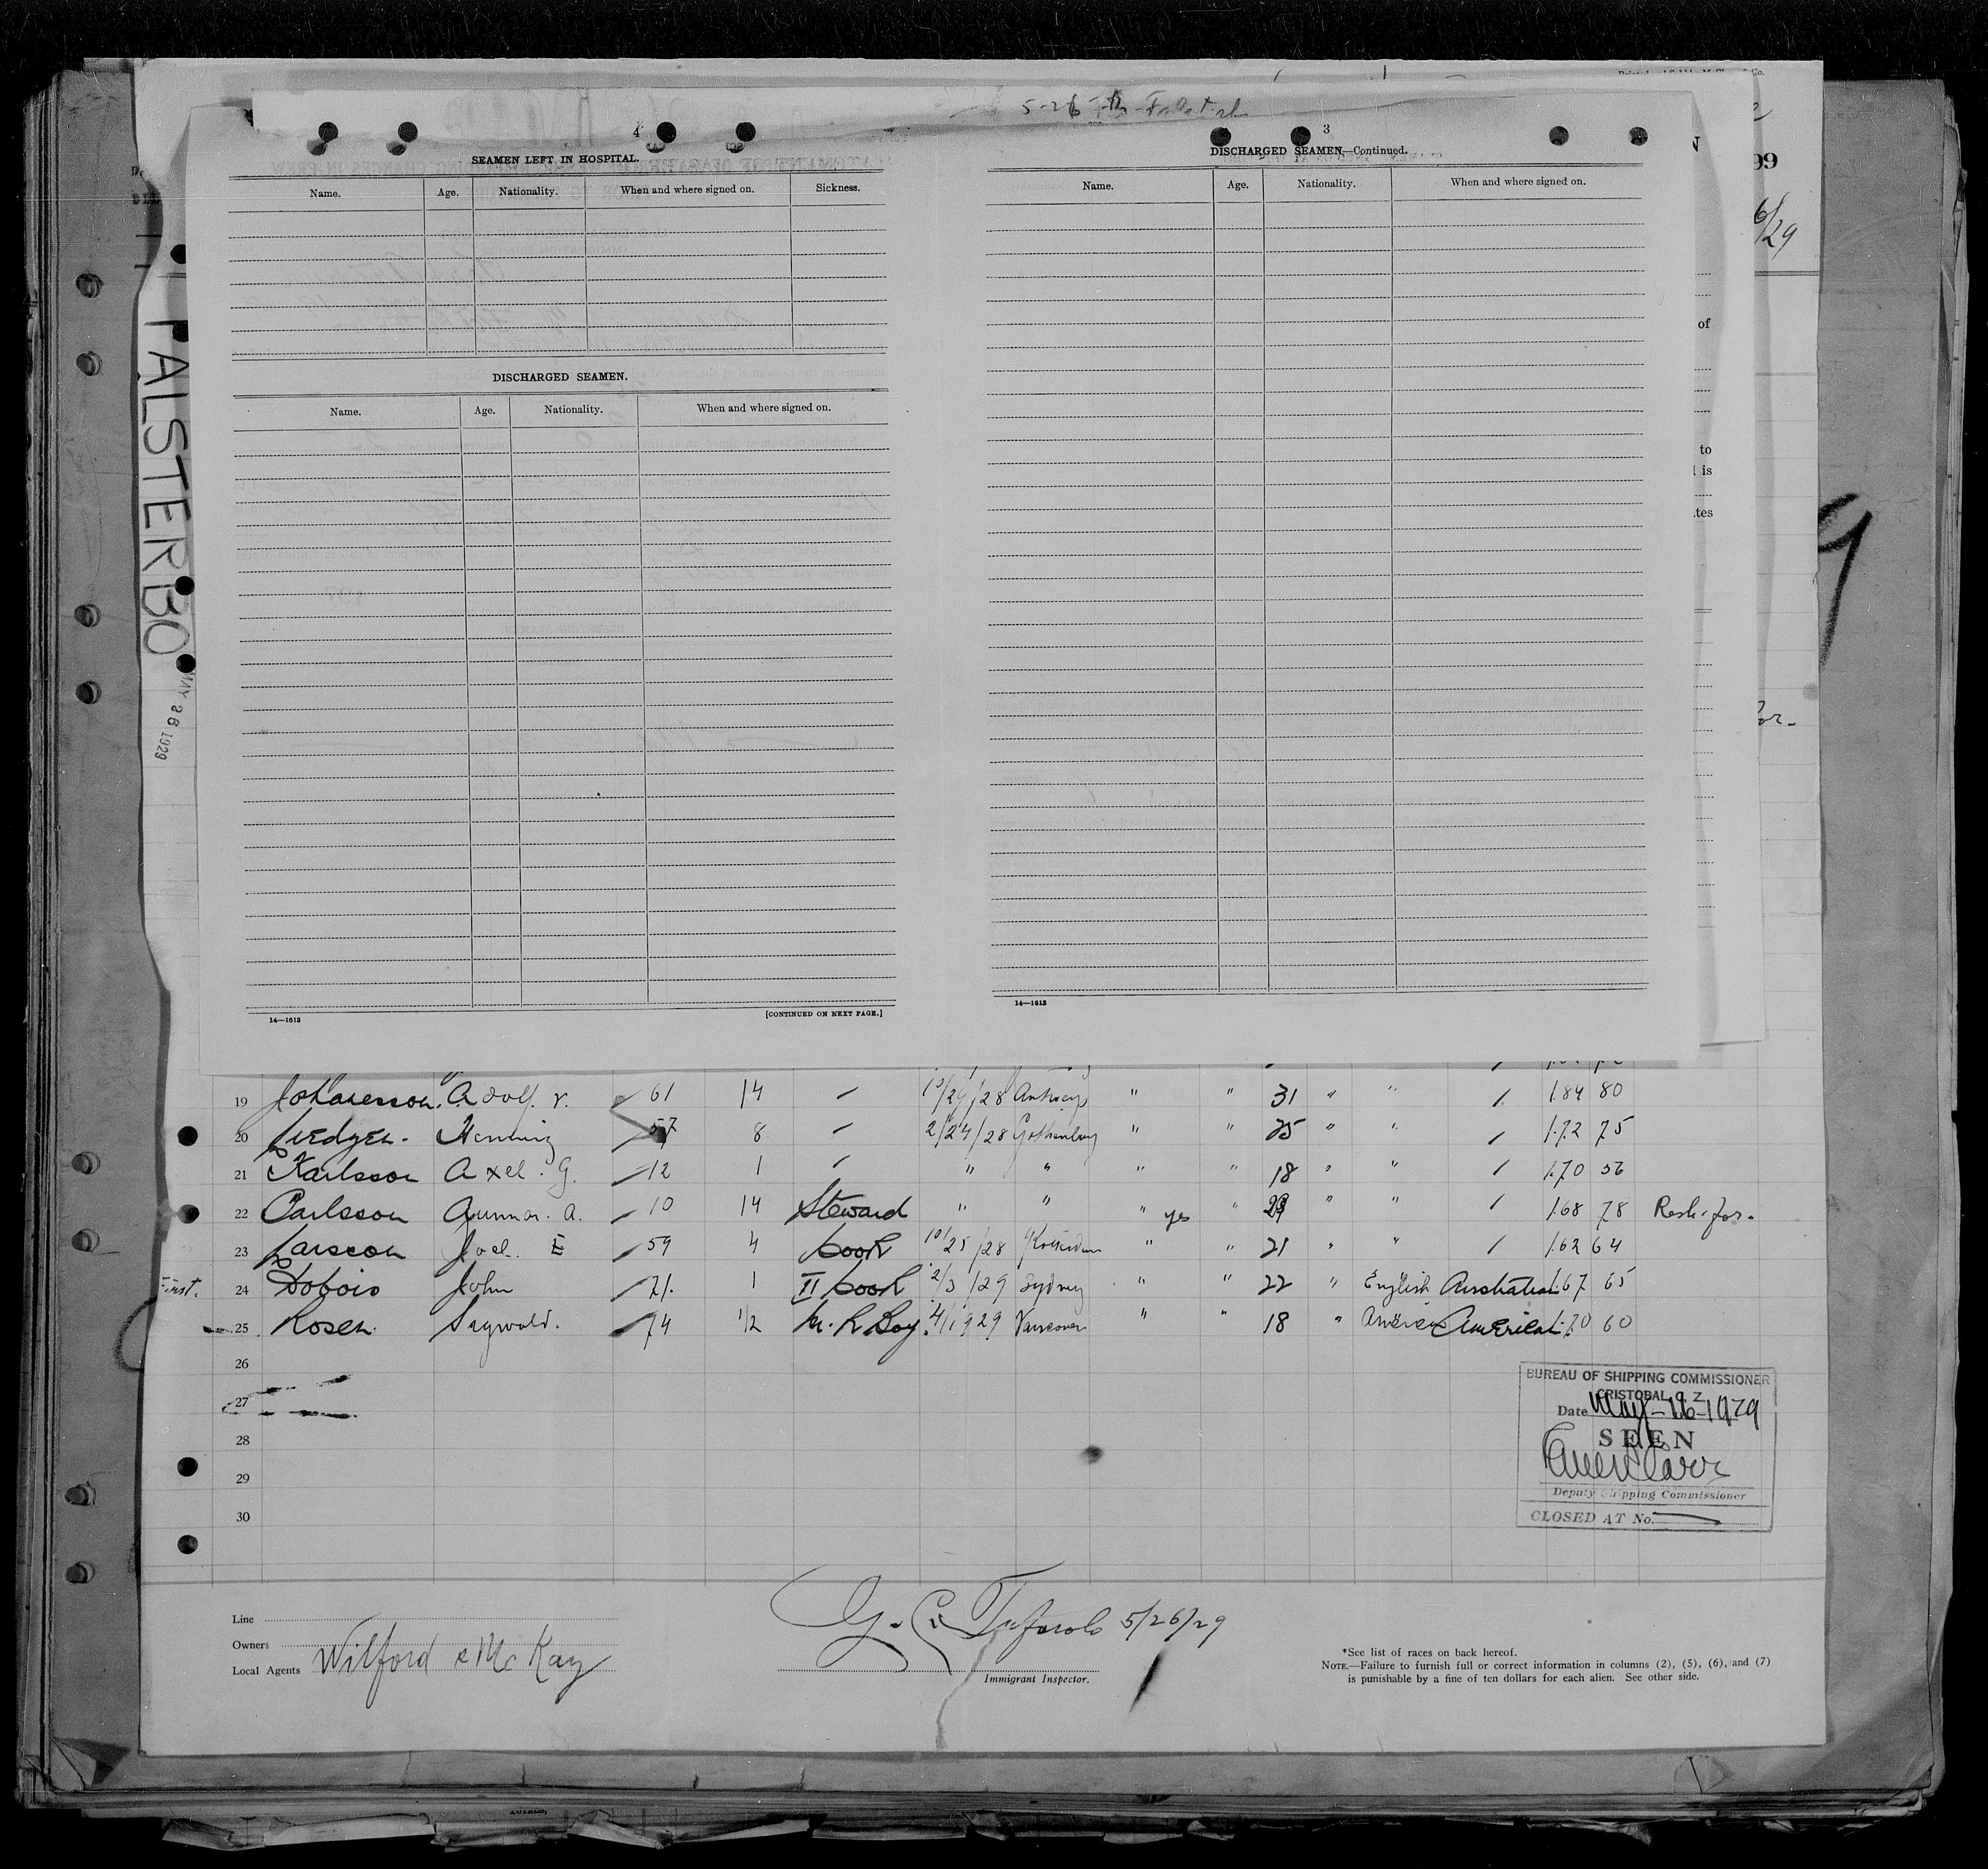 4
SEAMEN LEFT IN HOSPITAL.
Name. Age. Nationality. When and where signed on. Sickness.
DISCHARGED SEAMEN.
Name. Age. Nationality. When and where signed on.
14—1613 [CONTINUED ON NEXT PAGE.]
3
DISCHARGED SEAMEN—Continued.
Name. Age. Nationality. When and where signed on.
14—1613
FALSTERBO
MAY 26 1929
99
6/29
of
to
is
19 Johansson. Adolf. V. 61 14 10/29/28 Antwerp " " 31 " " 1.84 80
20 Henning 57 8 2/24/28 Gothenburg " " 25 " " 1.72 75
21 Karlsson Axel. G. 12 1 " " " " 18 " " 1.70 56
22 Carlsson Gunnar. A. 10 14 Steward " " " yes " " " 1.68 78
23 Larsson Joel. E 59 4 Cook 10/25/28 Rotterdam " " 21 " " 1.62 64
First. 24 John 71. 1 II Cook 2/3/29 Sydney " " 22 " English Australian 1.67 65
25 Rosen 74 1/2 M. R. Boy. 4/1 1929 Vancouver " " 18 " American American 1.70 60
26
27
28
29
30
BUREAU OF SHIPPING COMMISSIONER
CRISTOBAL C. Z.
Date May-16-1929
SEEN
Deputy Shipping Commissioner
CLOSED AT No.
Line
Owners
Local Agents Wilford & McKay
5/26/29
Immigrant Inspector.
*See list of races on back hereof.
NOTE.—Failure to furnish full or correct information in columns (2), (5), (6), and (7)
is punishable by a fine of ten dollars for each alien. See other side.